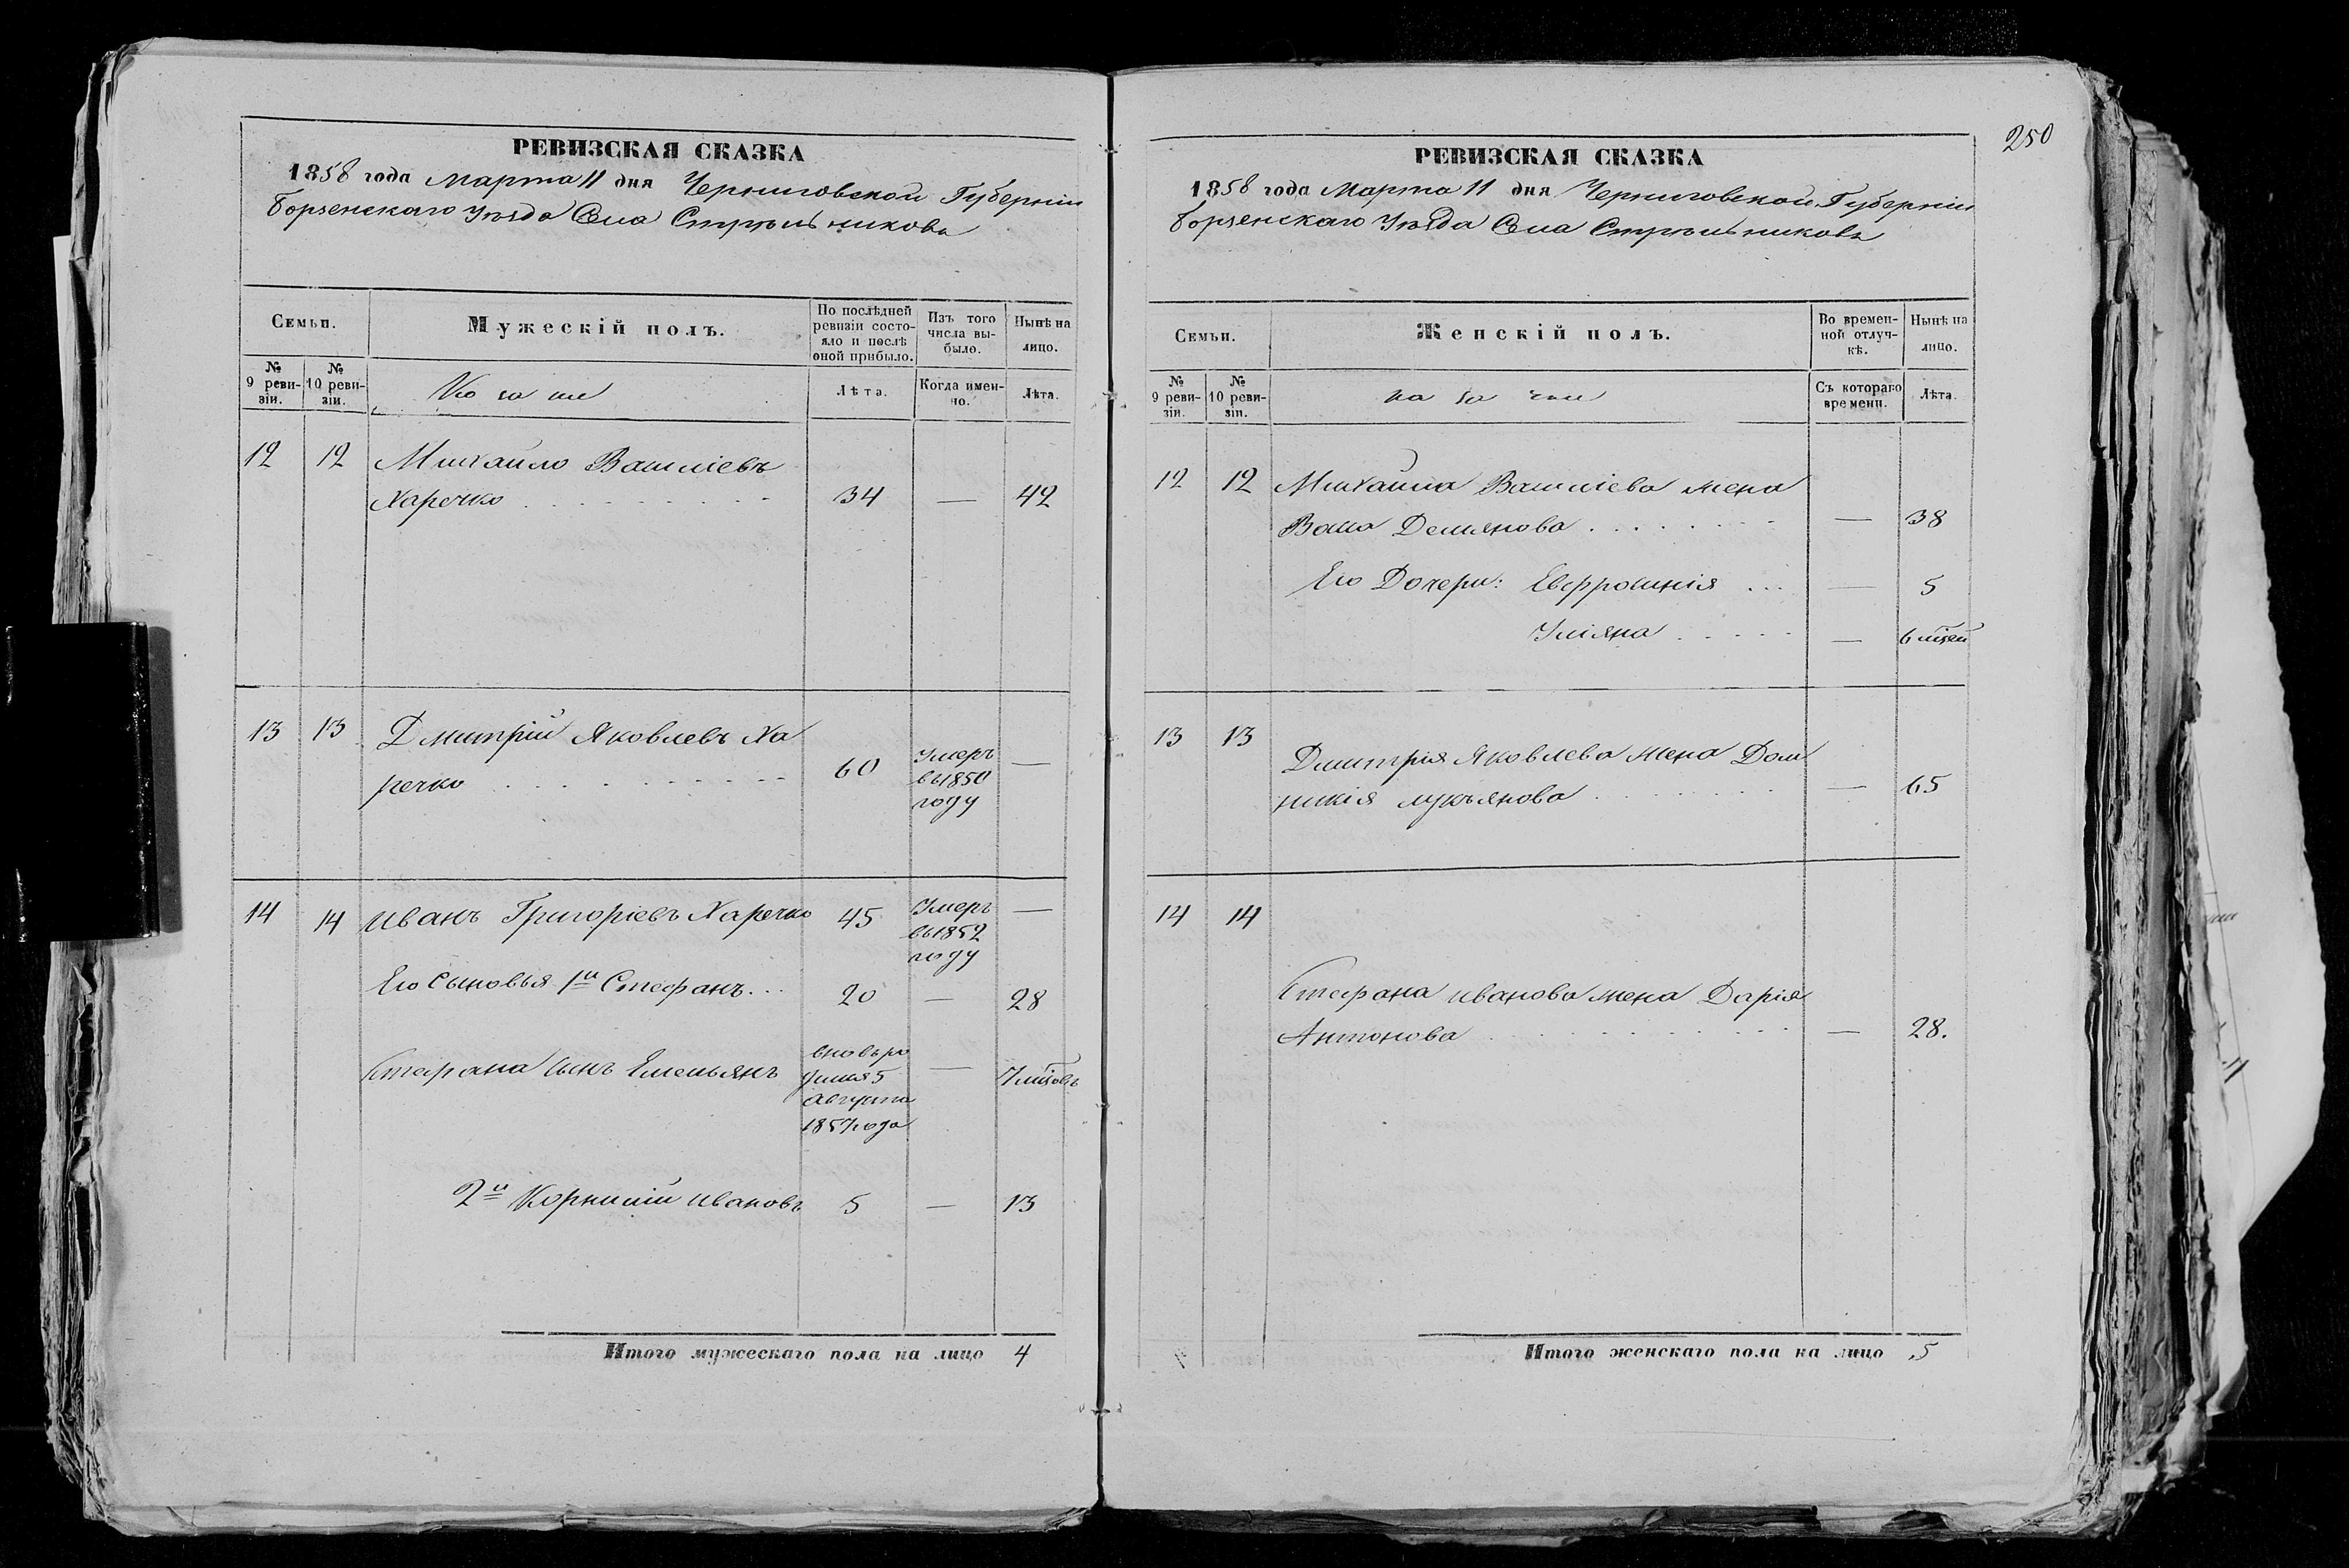 РЕВИЗСКАЯ СКАЗКА
1858 года Марта 11 дня Черниговской Губерніи
Борзенскаго Уѣзда Села Стрѣльниковъ
Семьи.
Мужескій полъ.
По послѣдней ревизіи состояло и послѣ оной прибыло.
Изъ того числа выбыло.
Нынѣ на лицо.
№ 9 ревизіи.
№ 10 ревизіи.
Козаки
Лѣта.
Когда именно.
Лѣта.
12 12 Михайло Василіевъ
Харечко 34 — 42
13 13 Дмитрій Яковлевъ Ха
речко 60 Умеръ —
въ 1850
году
14 14 Иванъ Григоріевъ Харечко 45 Умеръ —
въ 1852
году
Его Сыновья 1й Стефанъ 20 — 28
Стефана сынъ Емельянъ вновь ро — 7 мцовъ
дился 5
августа
1857 года
2й Корнилій Ивановъ 5 — 13
Итого мужескаго пола на лицо 4
250
РЕВИЗСКАЯ СКАЗКА
1858 года Марта 11 дня Черниговской Губерніи
Борзенскаго Уѣзда Села Стрѣльниковъ
Семьи.
Женскій полъ.
Во временной отлучкѣ.
Нынѣ на лицо.
№ 9 ревизіи.
№ 10 ревизіи.
козачки
Съ котораго времени.
Лѣта.
12 12 Михаила Василіева жена
Васса Демянова — 38
Его Дочери: Евфросинія — 5
Уліяна — 6 мцей
13 13
Дмитрія Яковлева жена Дом
никія Лукъянова — 65
14 14
Стефана Иванова жена Дарія
Антонова — 28.
Итого женскаго пола на лицо 5